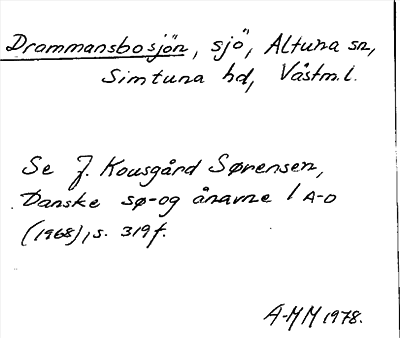 Drommansbosjön, sjö, Altuna sn,
Simtuna hd, Västm. l.
Se J. Kousgård Sørensen,
Danske sø- og ånavne 1 A-D
(1968), s. 319 f.
A-MM 1978.